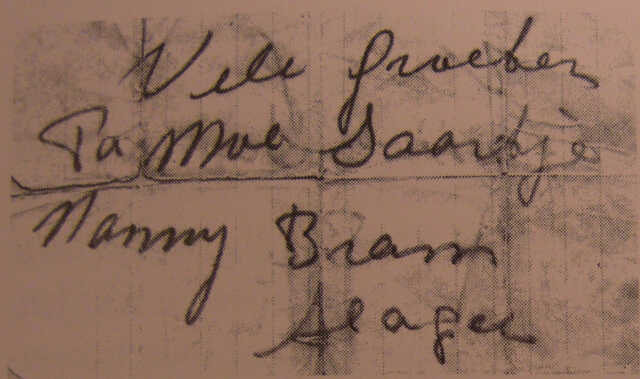 Vele Groeten
Pa Moe Saartje
Nanny Bram
Slager